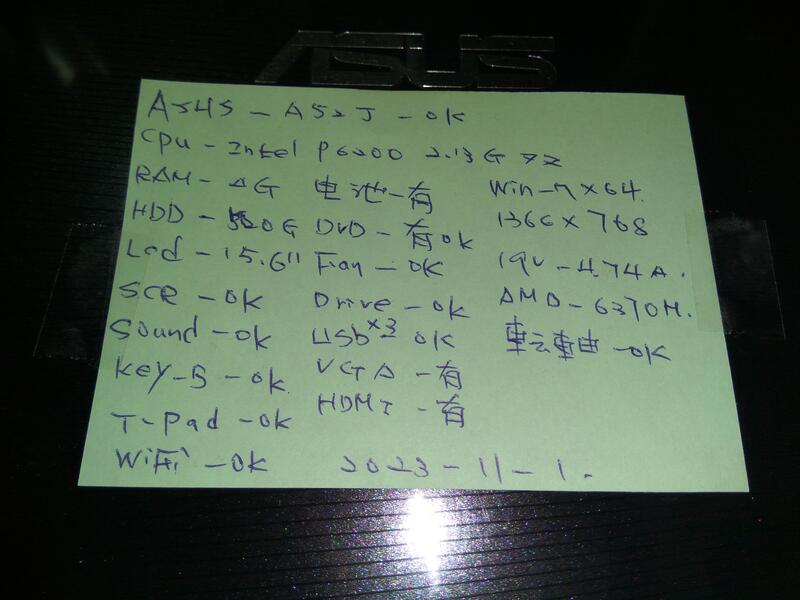 ASUS
A54S - A52J - OK
Cpu - Intel P6200 2.13G
RAM - 4G 电池 - 有 Win-7 x64.
HDD - 500G DVD - 有 ok 1366 x 768
Lcd - 15.6" Fan - OK 19V - 4.74A.
SCR - OK Drive - OK AMD - 6370M.
Sound - OK USb x3 - OK 転軸 - OK
Key-B - OK VGA - 有
T-Pad - OK HDMI - 有
WiFi - OK 2023-11-1.